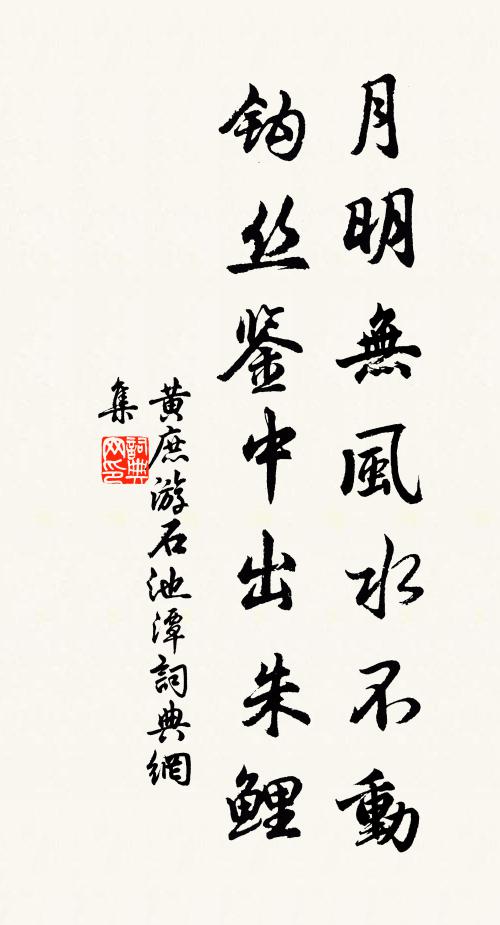 月明無風水不動
鈎丝鉴中出朱鲤
黄庶游石池潭詞典網
集
詞典
网印